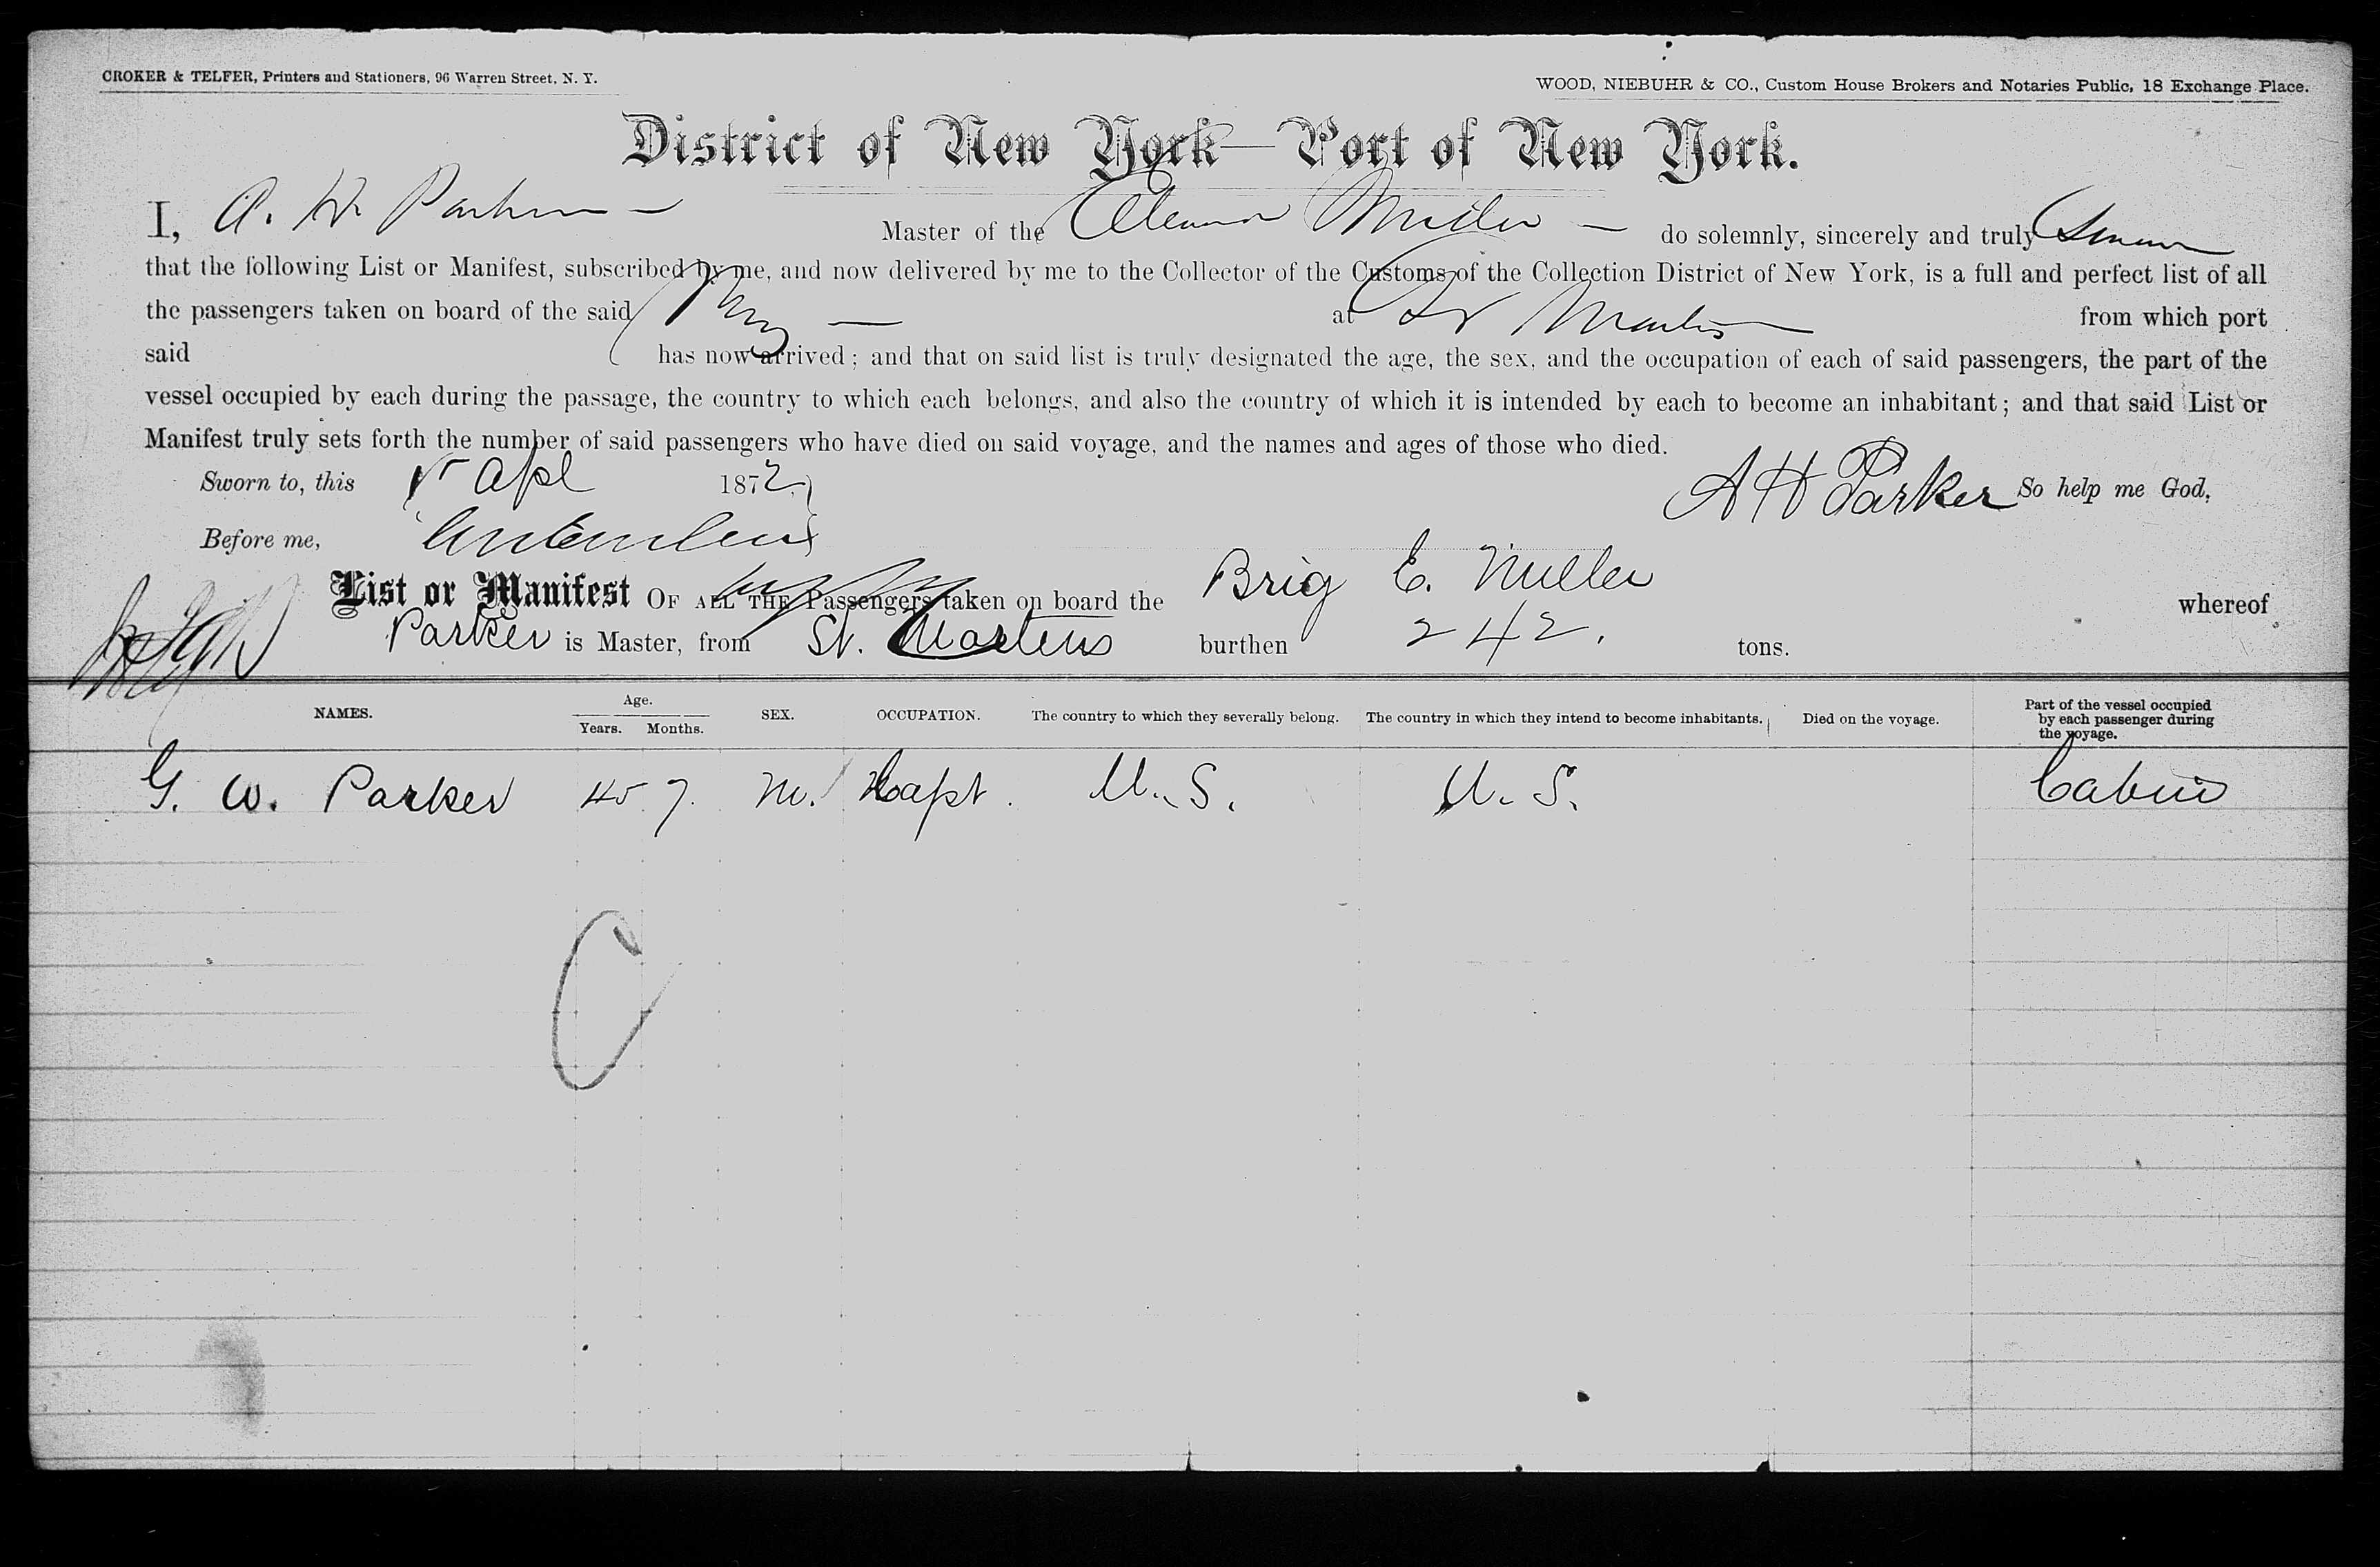 CROKER & TELFER, Printers and Stationers, 96 Warren Street, N. Y.
WOOD, NIEBUHR & CO., Custom House Brokers and Notaries Public, 18 Exchange Place.
District of New York—Port of New York.
I, A. H. Parker — Master of the Eleanor Miller — do solemnly, sincerely and truly Swear
that the following List or Manifest, subscribed by me, and now delivered by me to the Collector of the Customs of the Collection District of New York, is a full and perfect list of all
the passengers taken on board of the said Brig — at St Martins from which port
said has now arrived; and that on said list is truly designated the age, the sex, and the occupation of each of said passengers, the part of the
vessel occupied by each during the passage, the country to which each belongs, and also the country of which it is intended by each to become an inhabitant; and that said List or
Manifest truly sets forth the number of said passengers who have died on said voyage, and the names and ages of those who died.
Sworn to, this 5 Apl 1872 A H Parker So help me God.
Before me,
List or Manifest OF ALL THE Passengers taken on board the Brig E. Miller whereof
Parker is Master, from St. Martens burthen 242. tons.
NAMES. Age. Years. Months. SEX. OCCUPATION. The country to which they severally belong. The country in which they intend to become inhabitants. Died on the voyage. Part of the vessel occupied by each passenger during the voyage.
G. W. Parker 45 7. M. Capt. U. S. U. S. Cabin